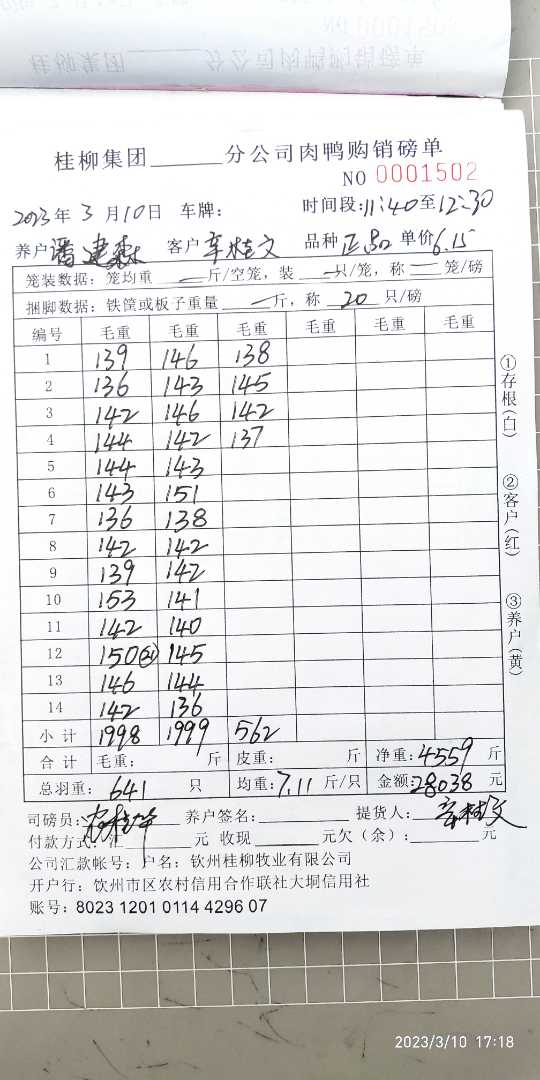 桂柳集团______分公司肉鸭购销磅单
NO 0001502
2023年 3月 10日 车牌: 时间段:11:40至12:30
养户潘建森 客户辛桂文 品种正品 单价6.15
笼装数据:笼均重 — 斤/空笼,装 — 只/笼,称 — 笼/磅
捆脚数据:铁筐或板子重量 — 斤,称 20 只/磅
编号 毛重 毛重 毛重 毛重 毛重 毛重
1 139 146 138
2 136 143 145
3 142 146 142
4 144 142 137
5 144 143
6 143 151
7 136 138
8 142 142
9 139 142
10 153 141
11 142 140
12 150(21) 145
13 146 144
14 142 136
小计 1998 1999 562
合计 毛重: 斤 皮重: 斤 净重:4559 斤
总羽重: 641 只 均重:7.11 斤/只 金额:28038 元
司磅员: 养户签名: 提货人:辛桂文
付款方式: 元 收现 元欠(余): 元
公司汇款帐号:户名:钦州桂柳牧业有限公司
开户行:钦州市区农村信用合作联社大垌信用社
账号:8023 1201 0114 4296 07
①存根(白)
②客户(红)
③养户(黄)
2023/3/10 17:18